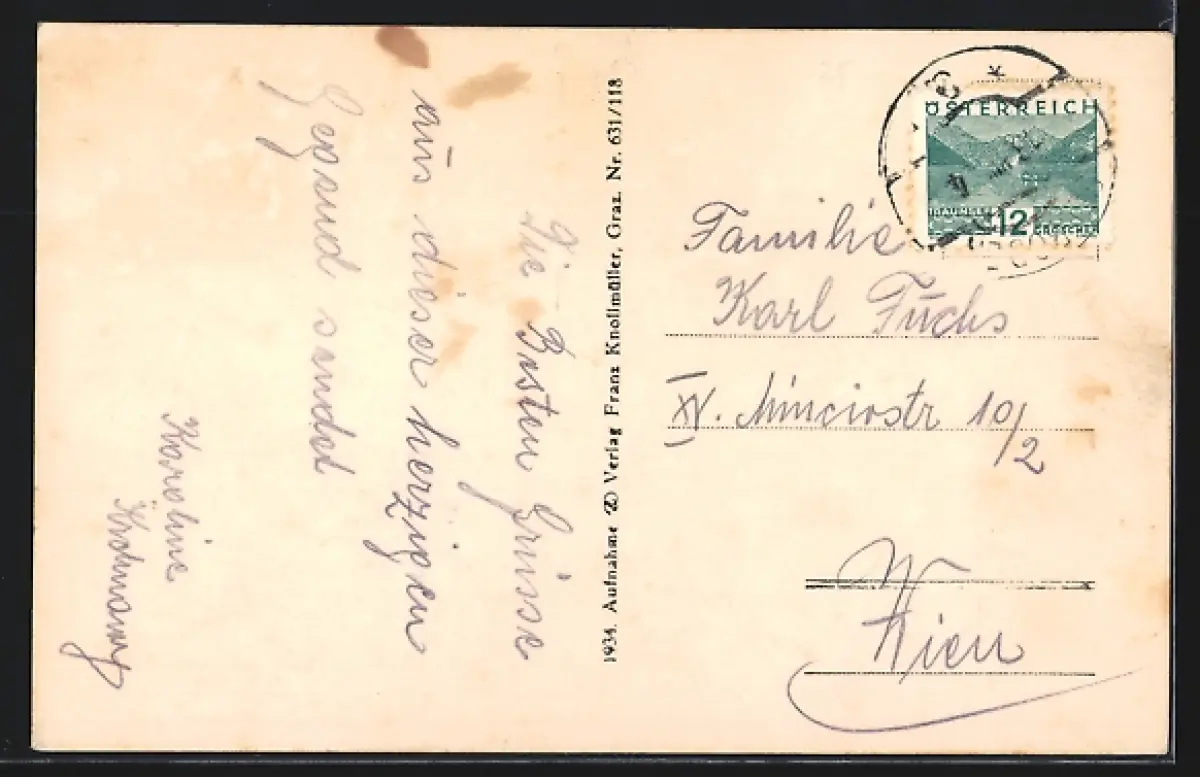 Die Besten Grüsse
aus dieser herzigen
Gegend sendet
Karoline
1934. Aufnahme Verlag Franz Knollmüller, Graz. Nr. 631/118
ÖSTERREICH
12
GROSCHEN
Familie
Karl Fuchs
XV. Minciostr 10/2
Wien